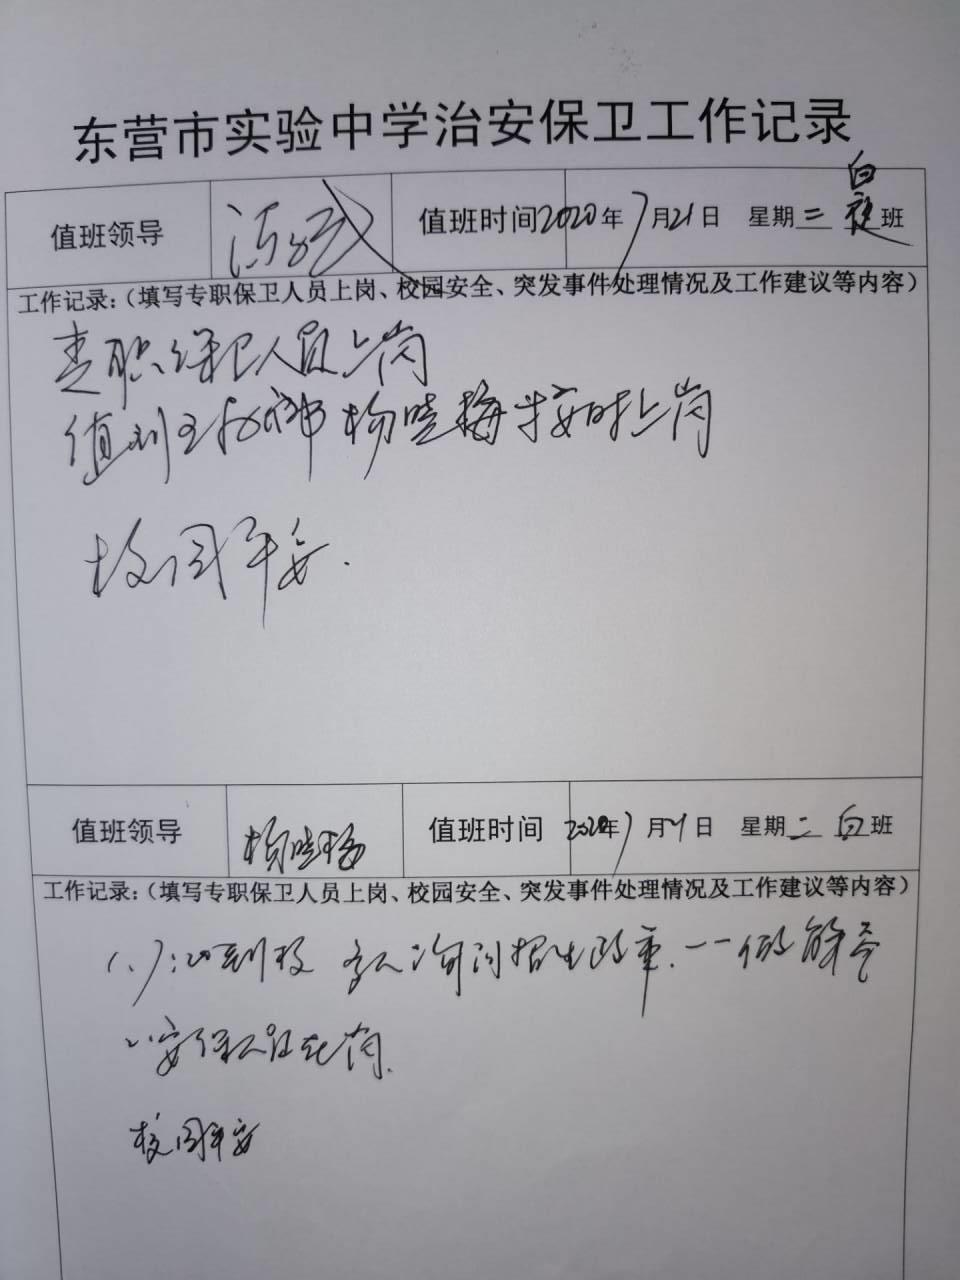 东营市实验中学治安保卫工作记录
值班领导 值班时间2020年7月21日 星期二 白班
工作记录:（填写专职保卫人员上岗、校园安全、突发事件处理情况及工作建议等内容）
专职保卫人员上岗
值 杨晓梅按时上岗
校园平安.
值班领导 杨晓梅 值班时间 2020年7月21日 星期二 白班
工作记录:（填写专职保卫人员上岗、校园安全、突发事件处理情况及工作建议等内容）
到校 多人次询问招生政策.一一做解答
安保人员在岗.
校园平安